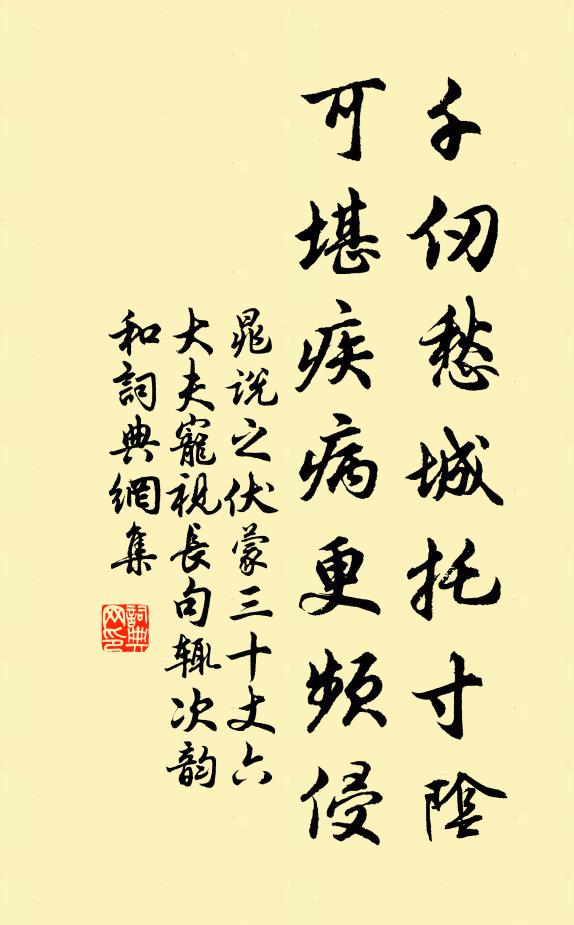 千仞愁城托寸陰
可堪疾病更頻侵
晁说之伏蒙三十丈六
大夫寵視長句辄次韵
和詞典網集
詞典网印